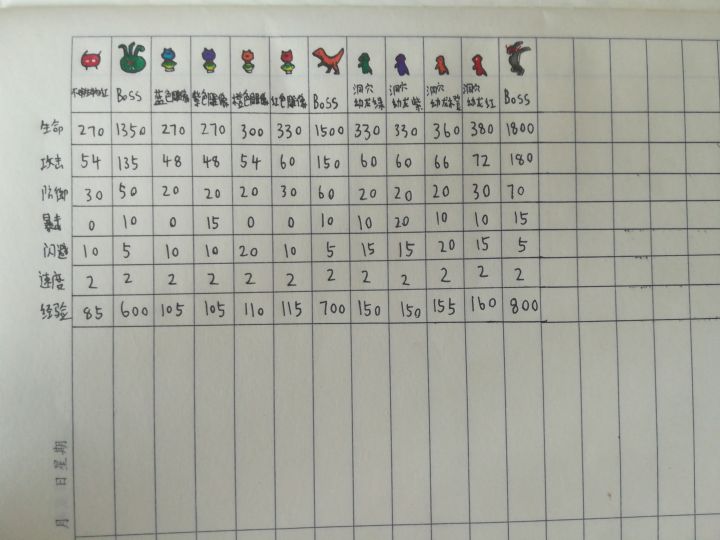 Boss 蓝色雕像 紫色雕像 橙色雕像 红色雕像 Boss 洞穴幼龙绿 洞穴幼龙紫 洞穴幼龙橙 洞穴幼龙红 Boss
生命 270 1350 270 270 300 330 1500 330 330 360 380 1800
攻击 54 135 48 48 54 60 150 60 60 66 72 180
防御 30 50 20 20 20 30 60 20 20 20 30 70
暴击 0 10 0 15 0 0 10 10 20 10 10 15
闪避 10 5 10 10 20 10 5 15 15 20 15 5
速度 2 2 2 2 2 2 2 2 2 2 2 2
经验 85 600 105 105 110 115 700 150 150 155 160 800
月 日 星期